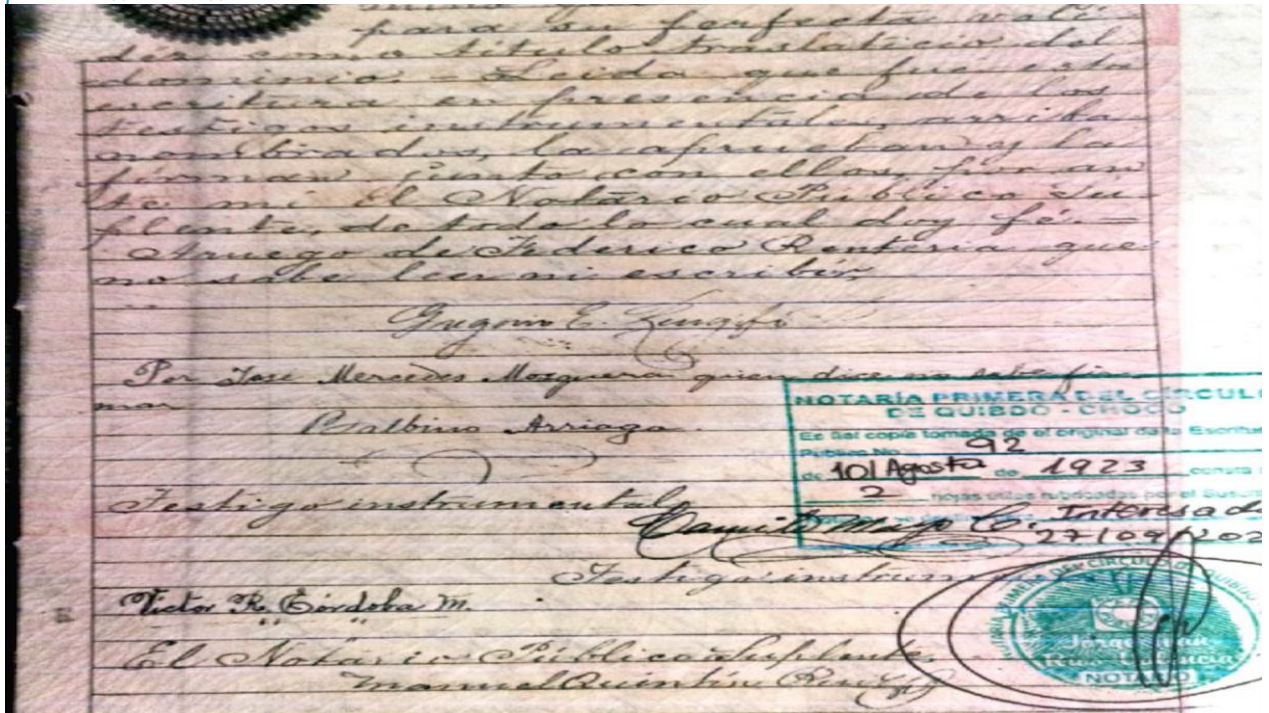 para su perfecta vali
déz como título traslaticio del
dominio. - Leida que fué esta
escritura en presencia de los
testigos instrumentales, arriba
nombrados, la aprueban y la
firman junto con ellos, por an
te mi el Notario Público Su
plente, de todo lo cual doy fé. —
Aruego de Federico Rentería que
no sabe leer ni escribir,
Gregorio E.
Por José Mercedes Mosquera quien dice no sabe fir
mar
Balbino Arriaga.
Testigo instrumental,
Camilo Mayo C.
Testigo instrum
Victor R. Córdoba M.
El Notario Público Suplente,
Manuel Quintín
NOTARÍA PRIMERA DEL CÍRCUL
DE QUIBDO - CHOCO
Es fiel copia tomada de el original de la Escritu
Publica No. 92
de 10 | Agosto de 1923 consta
2 hojas utiles rubricadas por el Suscri
Interesado
27/09/202
NOTARIO